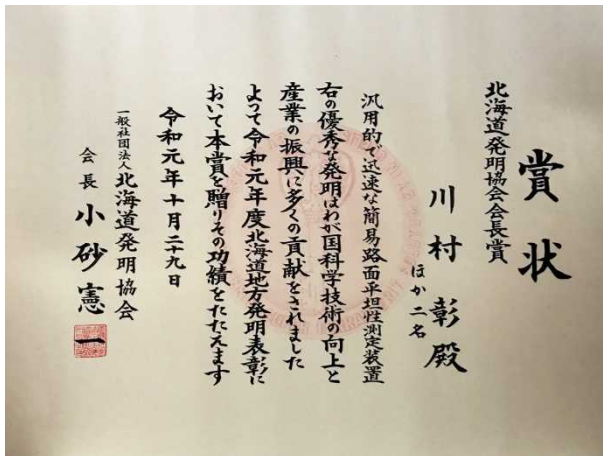 賞状
北海道発明協会会長賞
川村彰殿
ほか二名
汎用的で迅速な簡易路面平坦性測定装置
右の優秀な発明はわが国科学技術の向上と
産業の振興に多くの貢献をされました
よって令和元年度北海道地方発明表彰に
おいて本賞を贈りその功績をたたえます
令和元年十月二十九日
一般社団法人北海道発明協会
会長小砂憲一